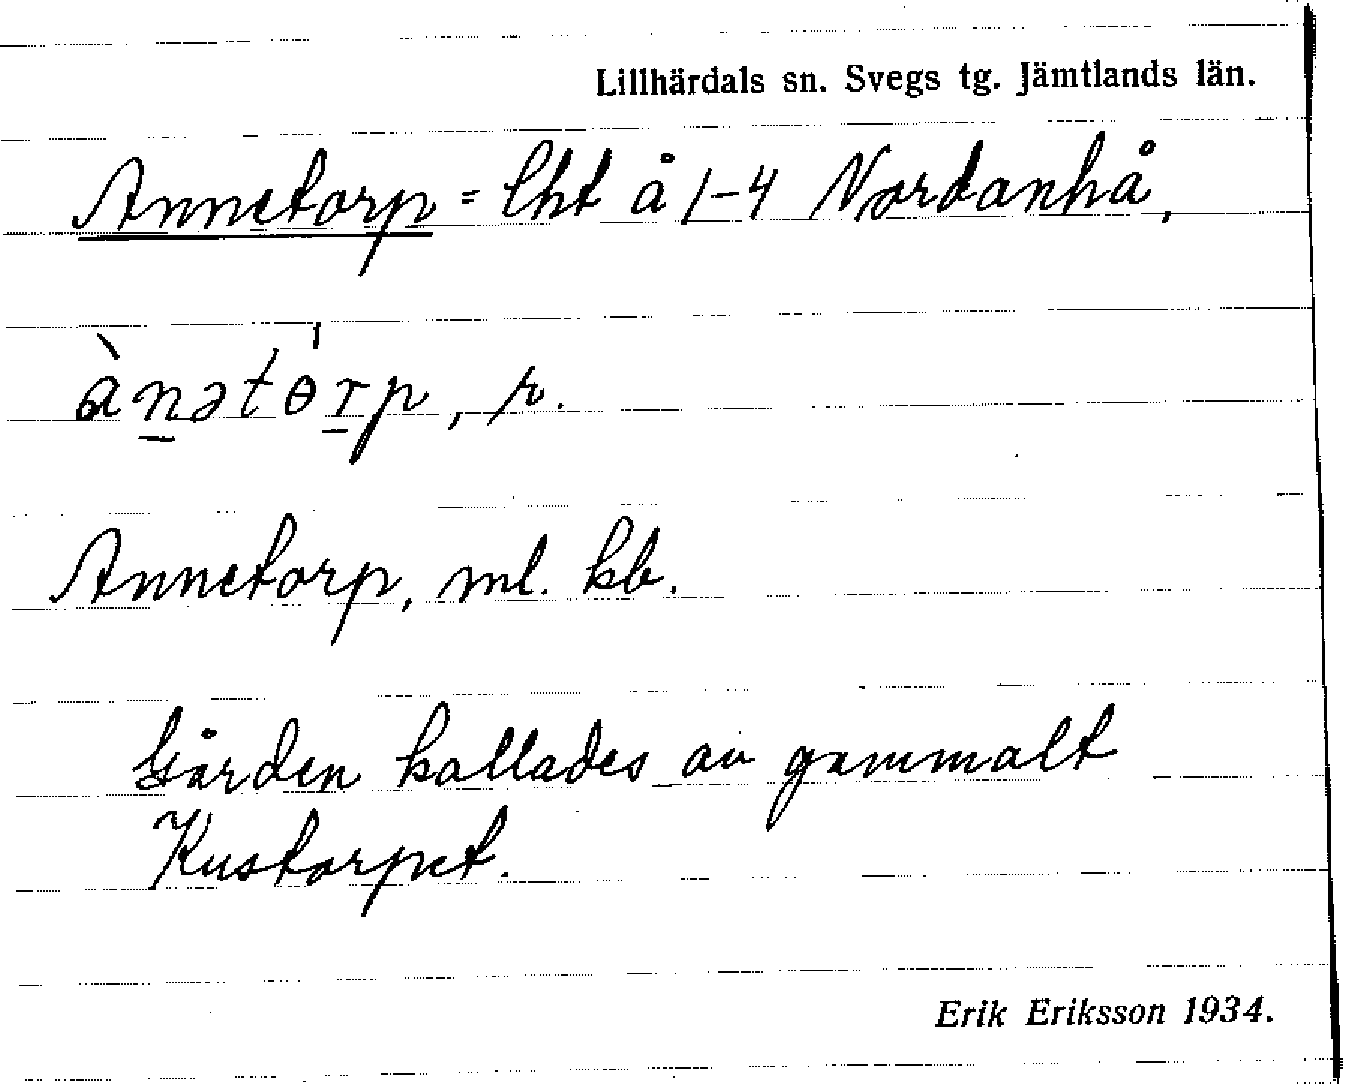 Lillhärdals sn. Svegs tg. Jämtlands län.
Annetorp = lht å 1-4 Nordanhå,
ànət
, r.
Annetorp, ml. kb.
Gården kallades av gammalt
Kustorpet.
Erik Eriksson 1934.